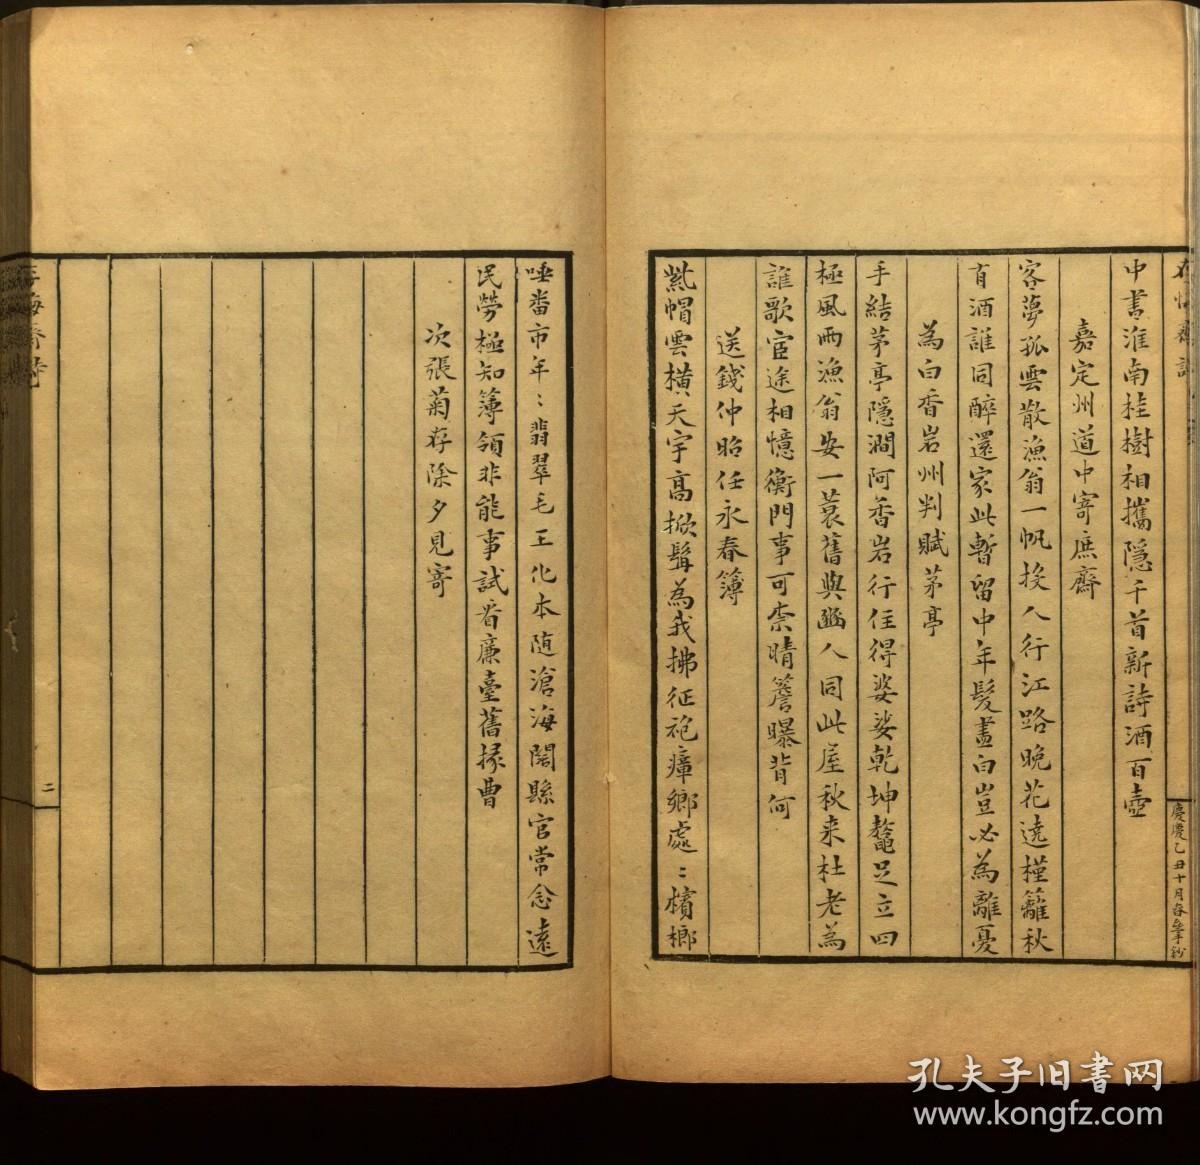 存悔齋詩
慶慶乙丑十月春手鈔
中書淮南桂樹相攜隱千首新詩酒百壺
嘉定州道中寄庶齋
客夢孤雲散漁翁一帆投人行江路晚花遶槿籬秋
有酒誰同醉還家此暫留中年髮盡白豈必為離憂
為白香岩州判賦茅亭
手結茅亭隱澗阿香岩行住得婆娑乾坤鼇足立四
極風雨漁翁安一蓑舊與幽人同此屋秋来杜老為
誰歌宦途相憶衡門事可柰晴簷曝背何
送錢仲昭任永春簿
氎帽雲横天宇高掀髯為我拂征袍瘴鄉處〻檳榔
唾畨市年〻翡翠毛王化本随滄海濶縣官常念遠
民勞極知簿領非能事試看廉臺舊掾曹
次張菊存除夕見寄
存悔齋詩
二
孔夫子旧書网
www.kongfz.com